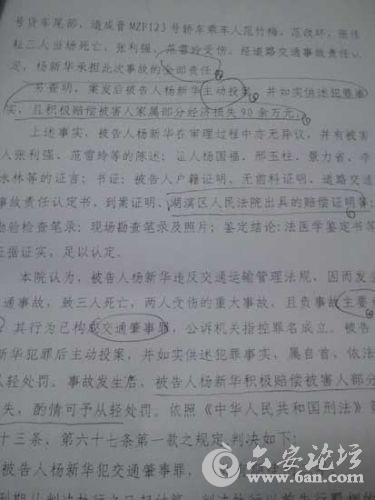 号货车尾部，造成晋MZF123号轿车乘车人范竹梅、范改环、张佳
耘三人当场死亡，张利强、范雪玲受伤。经道路交通事故责任认
定，杨新华承担此次事故的全部责任。
另查明，案发后被告人杨新华主动投案，并如实供述犯罪事
实，且积极赔偿被害人家属部分经济损失90余万元。
上述事实，被告人杨新华在审理过程中亦无异议，并有被害
人张利强、范雪玲等的陈述；证人杨国福、邢玉柱、景力省、李
水林等的证言；书证：被告人户籍证明、无前科证明、道路交通
事故责任认定书、到案证明、湖滨区人民法院出具的赔偿证明等；
勘验检查笔录：现场勘查笔录及照片；鉴定结论：法医学鉴定书等
证据证实，足以认定。
本院认为，被告人杨新华违反交通运输管理法规，因而发生
通事故，致三人死亡，两人受伤的重大事故，且负事故主要
，其行为已构成交通肇事罪，公诉机关指控罪名成立。被告
新华犯罪后主动投案，并如实供述犯罪事实，属自首，依法
从轻处罚。事故发生后，被告人杨新华积极赔偿被害人部分
失，酌情可予从轻处罚。依照《中华人民共和国刑法》第
十三条、第六十七条第一款之规定，判决如下：
被告人杨新华犯交通肇事罪，
六安论坛
www.6an.com